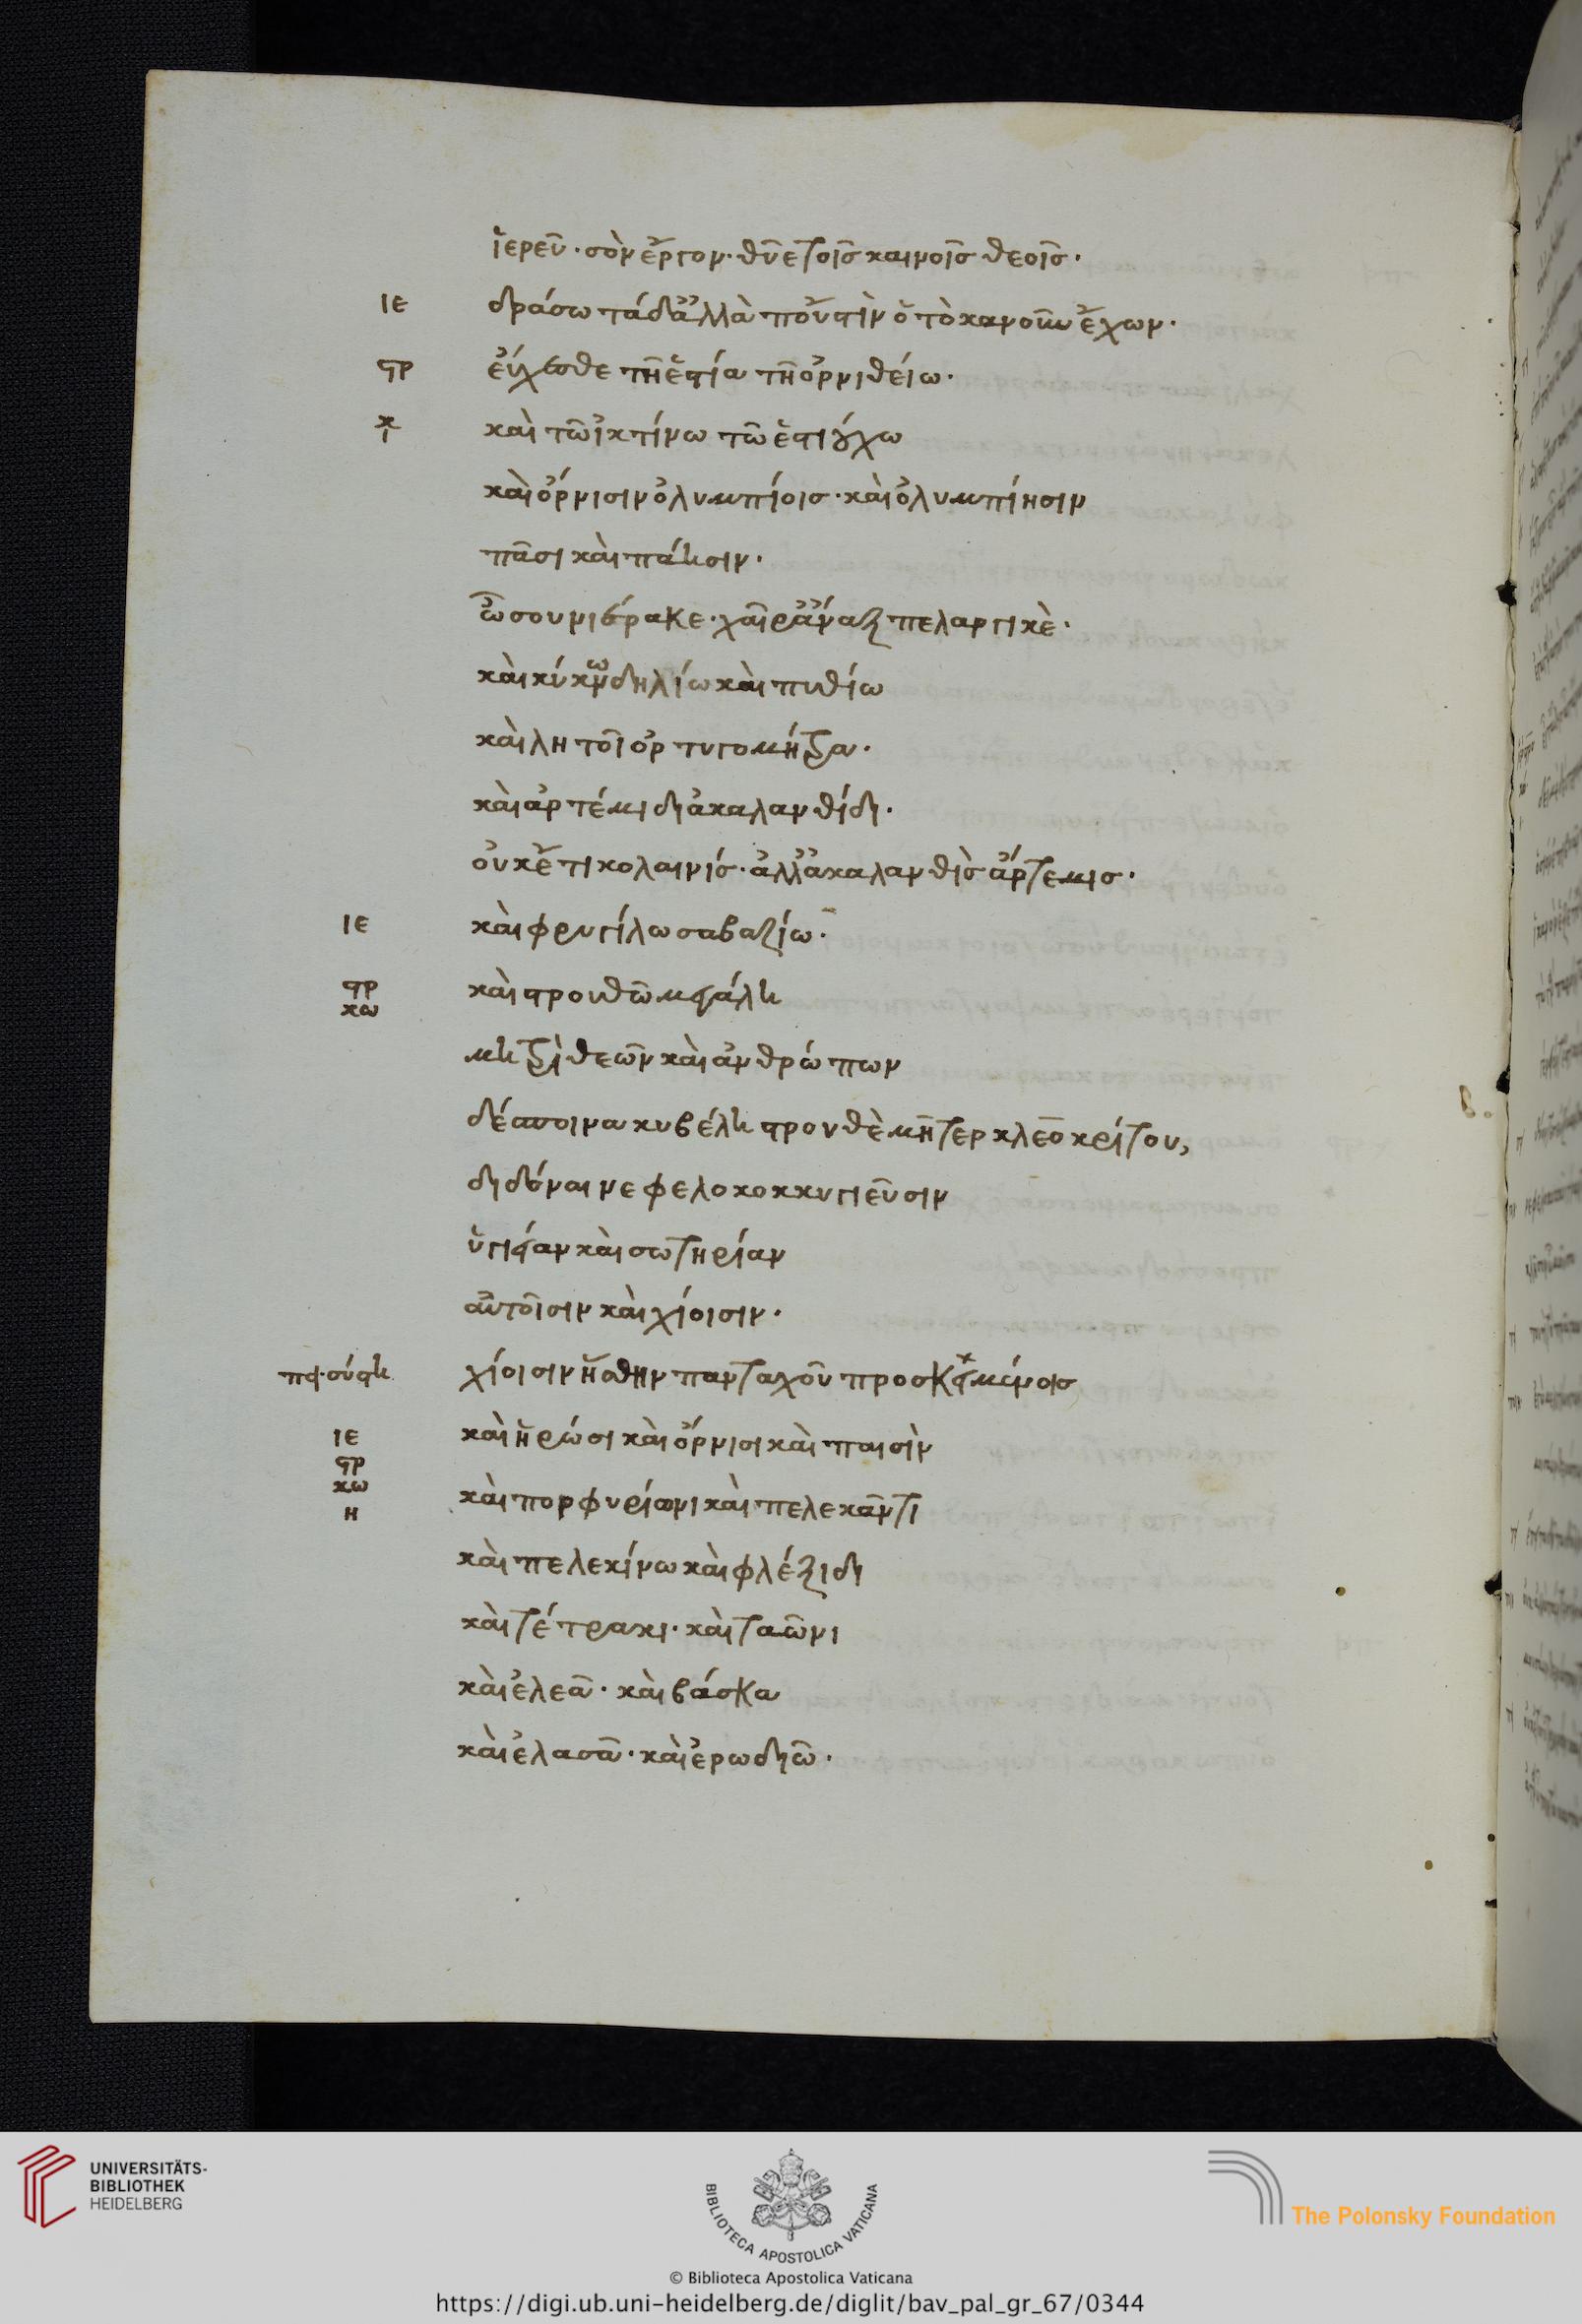 ἱερεῦ· σὸν ἔργον· θῦε τοῖς καινοῖς θεοῖς·
ιε δράσω τάδ' ἀλλὰ ποῦ 'στὶν ὁ τὸ κανοῦν ἔχων·
στρ εὔχεσθε τῆ ἑστία τῆ ὀρνιθείω·
καὶ τῶ ἰκτίνω τῶ ἑστιούχω
καὶ ὄρνισιν ὀλυμπίοις· καὶ ὀλυμπίησιν
πᾶσι καὶ πάσησιν·
ὦ σουνιέρακε· χαῖρ' ἄναξ πελαργικὲ·
καὶ κύκνω δηλίω καὶ πυθίω
καὶ λητοῖ ὀρτυγομήτρα·
καὶ ἀρτέμιδι ἀκαλανθίδι·
οὐκέτι κολαινίς· ἀλλ' ἀκαλανθὶς ἄρτεμις·
ιε καὶ φρυγίλω σαβαζίω·
στρ καὶ στρουθῶ μεγάλη
χω μητρὶ θεῶν καὶ ἀνθρώπων
δέσποινα κυβέλη στρουθὲ μῆτερ κλεοκρίτου,
διδόναι νεφελοκοκκυγιεῦσιν
ὑγιείαν καὶ σωτηρίαν
αὐτοῖσιν καὶ χίοισιν·
χίοισιν ἥσθην πανταχοῦ προσκειμένοις
ιε καὶ ἥρωσι καὶ ὄρνισι καὶ παισὶν
στρ
χω
η καὶ πορφυρίωνι καὶ πελεκᾶντι
καὶ πελεκίνω καὶ φλέξιδι
καὶ τέτρακι· καὶ ταῶνι
καὶ ἐλεᾶ· καὶ βάσκα
καὶ ἐλασᾶ· καὶ ἐρωδιῶ·
β·
UNIVERSITÄTS-
BIBLIOTHEK
HEIDELBERG
BIBLIOTECA APOSTOLICA VATICANA
The Polonsky Foundation
© Biblioteca Apostolica Vaticana
https://digi.ub.uni-heidelberg.de/diglit/bav_pal_gr_67/0344